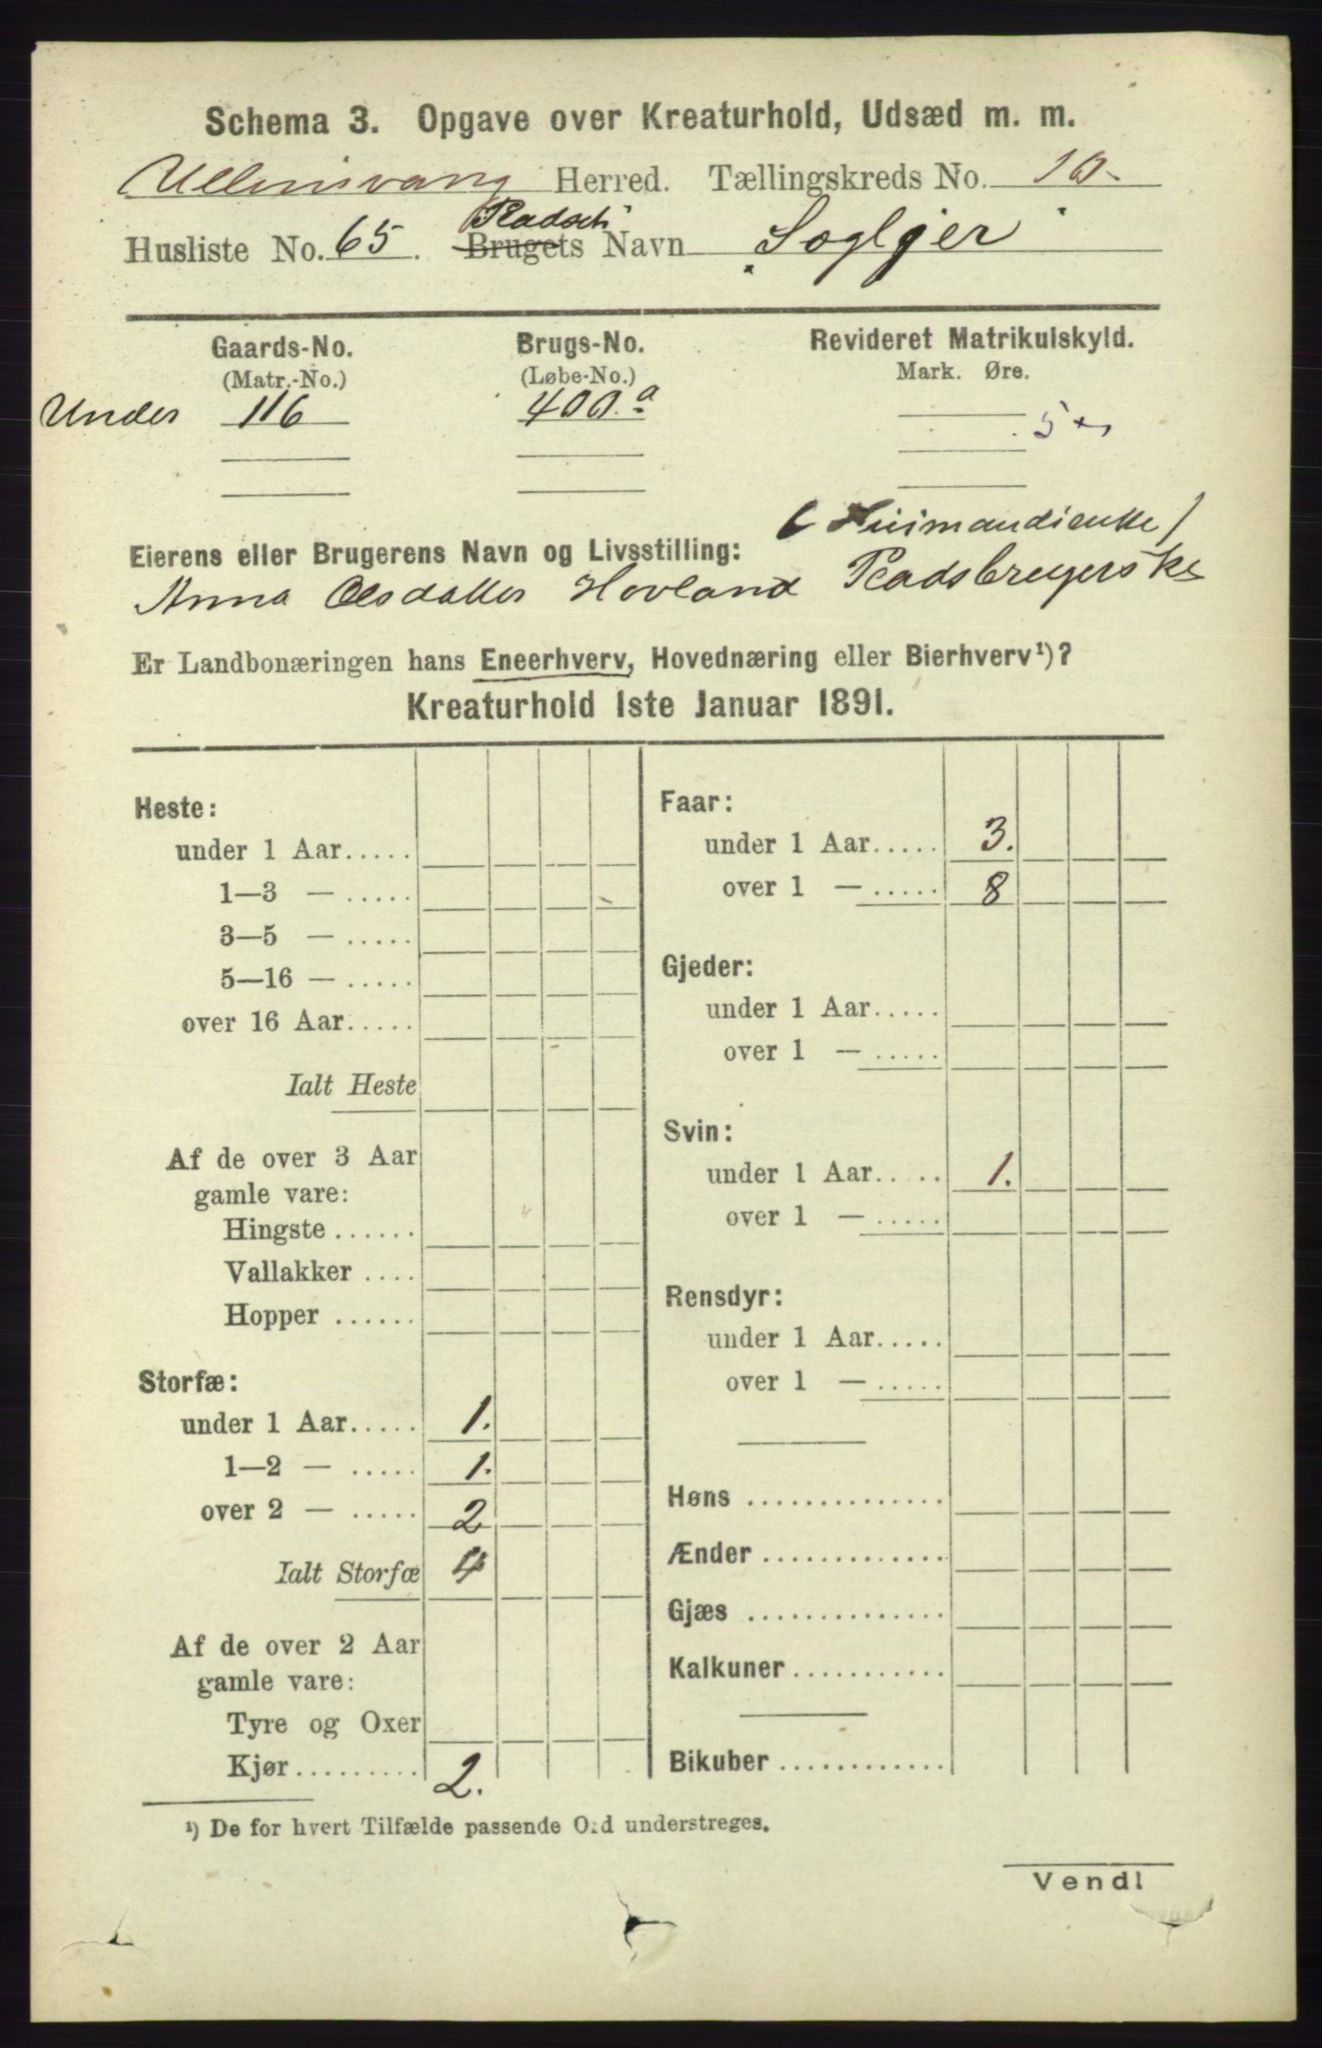 Schema 3. Opgave over Kreaturhold, Udsæd m. m.
Ullensvang Herred. Tællingskreds No. 10.
Husliste No. 65. Pladsets Navn Sogljer
Gaards-No. Brugs-No. Revideret Matrikulskyld.
(Matr.-No.) (Løbe-No.) Mark. Øre.
Under 116 400.a
5
(Husmandsenke)
Eierens eller Brugerens Navn og Livsstilling:
Anna Olsdatter Hovland Pladsbrugerske
Er Landbonæringen hans Eneerhverv, Hovednæring eller Bierhverv¹)?
Kreaturhold 1ste Januar 1891.
Heste:
under 1 Aar.....
1—3 — .....
3—5 — .....
5—16 — .....
over 16 Aar.....
Ialt Heste
Af de over 3 Aar
gamle vare:
Hingste ......
Vallakker ....
Hopper ......
Storfæ:
under 1 Aar..... 1.
1—2 — ..... 1.
over 2 — ..... 2
Ialt Storfæ 4
Af de over 2 Aar
gamle vare:
Tyre og Oxer
Kjør......... 2.
Faar:
under 1 Aar..... 3.
over 1 — ..... 8
Gjeder:
under 1 Aar.....
over 1 — .....
Svin:
under 1 Aar..... 1.
over 1 — .....
Rensdyr:
under 1 Aar.....
over 1 — .....
Høns ..............
Ænder .............
Gjæs ..............
Kalkuner...........
Bikuber ............
¹) De for hvert Tilfælde passende Ord understreges.
Vend!